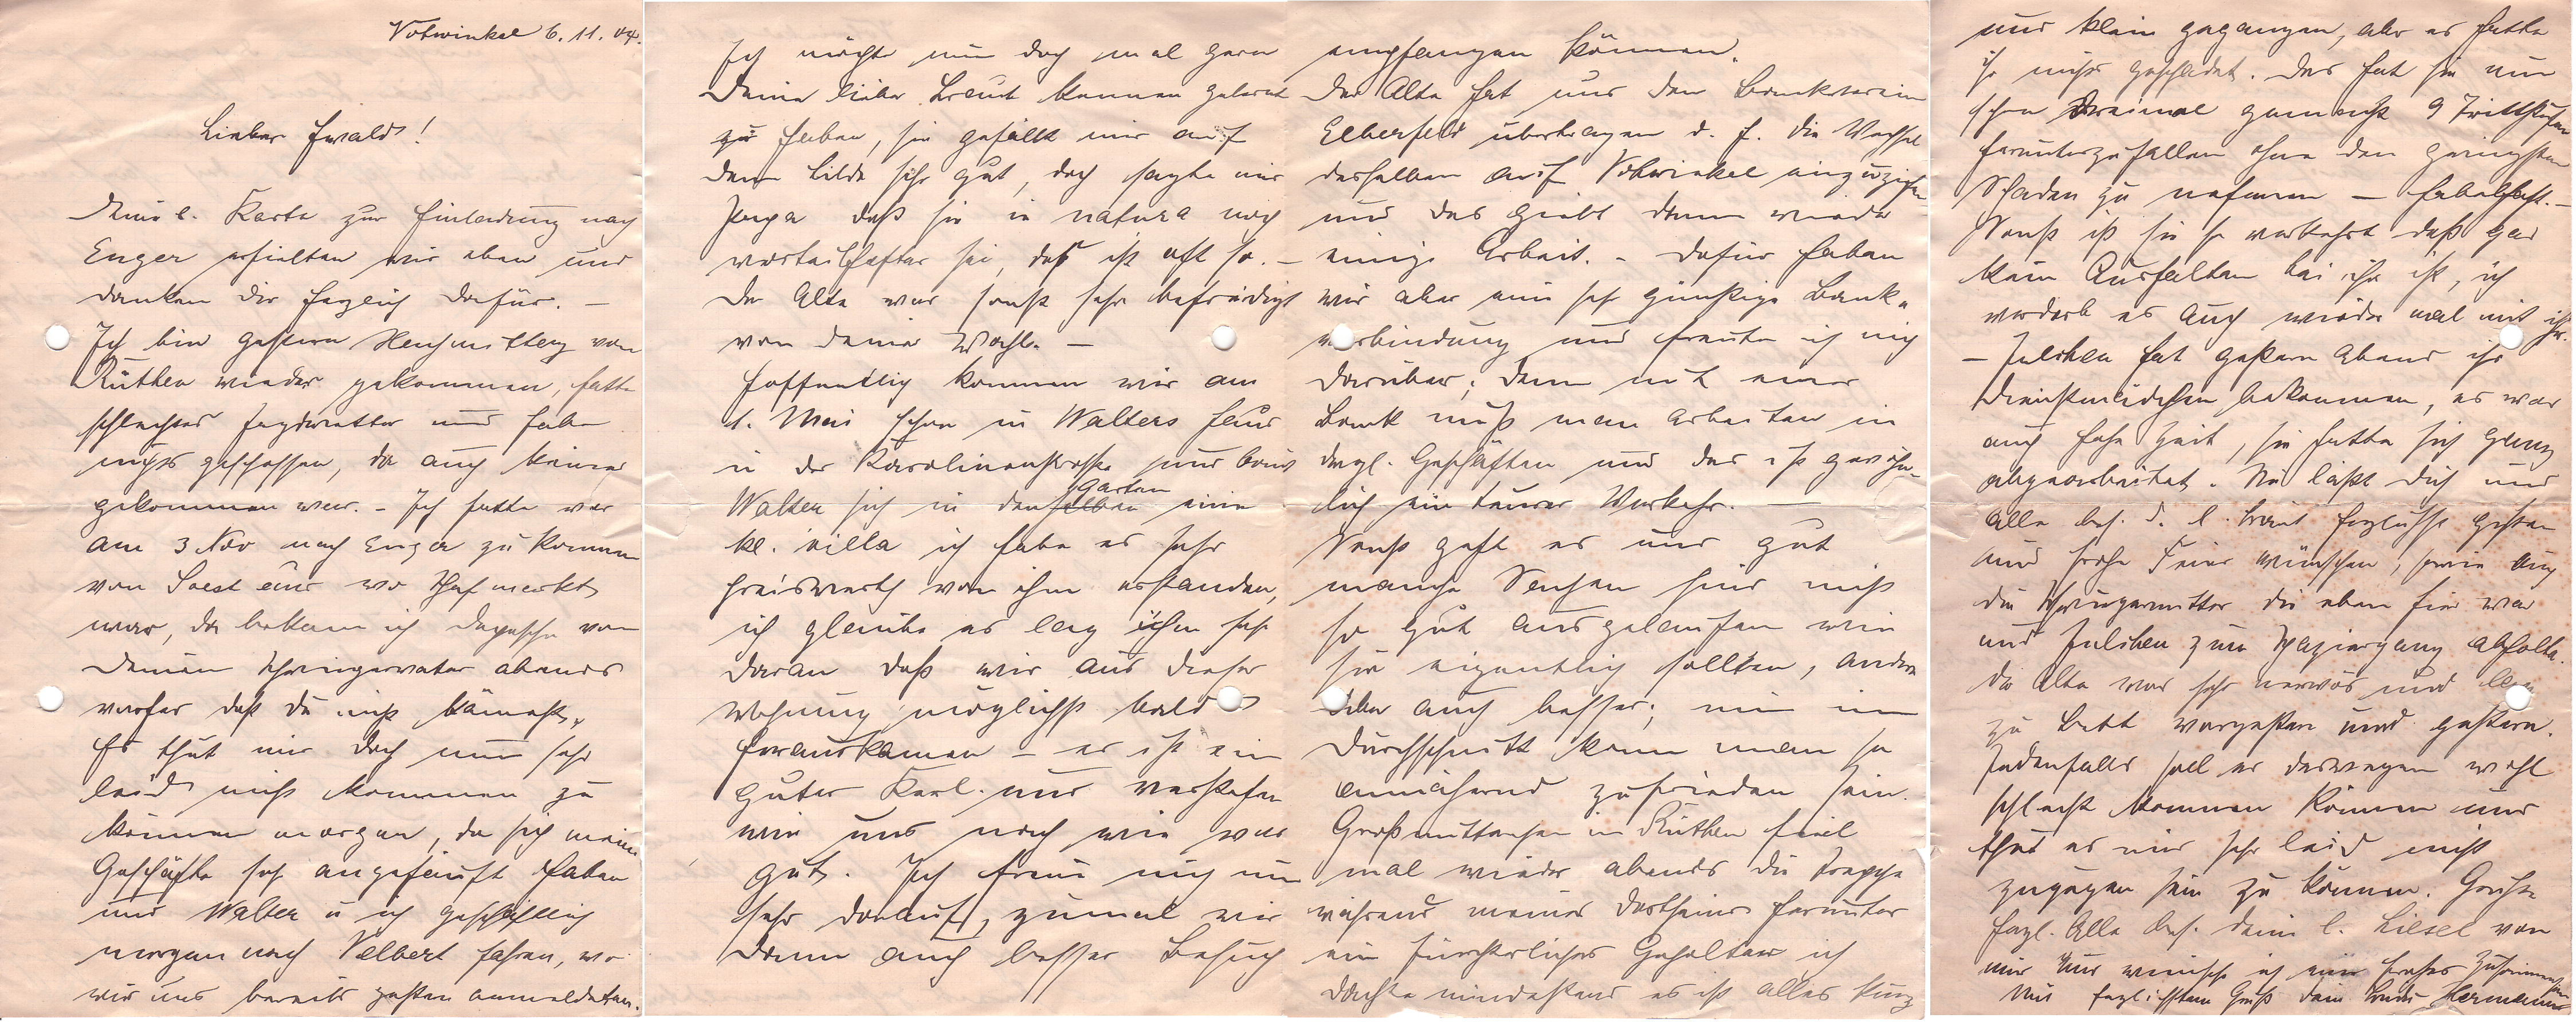 Vohwinkel 6. 11. 04.
Lieber Ewald!
Deine l. Karte zur Einladung nach
Enger erhielten wir eben und
danken Dir herzlich dafür. –
Ich bin gestern Nachmittag von
Rüthen wieder gekommen, hatte
schlechtes Jagdwetter und habe
nichts geschossen, da auch keiner
gekommen war. – Ich hatte vor
am 3 Nov nach Enger zu kommen
von Soest aus wo Hofmarkt
war, da bekam ich Depesche von
Deinem Schwiegervater abends
vorher daß Du nicht kämest.
Es thut mir doch nun sehr
leid nicht kommen zu
können morgen, da sich meine
Geschäfte sehr angehäuft haben
und Walter u ich geschäftlich
morgen nach Velbert fahren, wo
wir uns bereits gestern anmeldeten.
Ich möchte nun doch mal gern
Deine liebe Braut kennen gelernt
zu haben, sie gefällt mir auf
dem Bilde sehr gut, doch sagte mir
Papa daß sie in natura noch
vorteilhafter sei, das ist oft so. –
Der Alte war sonst sehr befriedigt
von Deiner Wahl. –
Hoffentlich kommen wir am
1. Mai schon in Walters Haus
in der Karolinenstrasse und baut
Walter sich in denselben Garten eine
kl. villa ich habe es sehr
preiswerth von ihm erstanden,
ich glaube es lag ihm sehr
daran daß wir aus dieser
Wohnung möglichst bald
herauskamen – er ist ein
guter Kerl und verstehen
wir uns nach wie vor
gut. Ich freue mich nun
sehr darauf, zumal wir
dann auch besser Besuch
empfangen können.
Der Alte hat uns den Bankverein
Elberfeld übertragen d. h. die Wechsel
desselben auf Vohwinkel einzuziehen
und das giebt dann wieder
einige Arbeit. – Dafür haben
wir aber eine sehr günstige Bank-
verbindung und freute ich mich
darüber; denn mit einer
Bank muß man arbeiten in
dergl. Geschäften und das ist gewöhn-
lich ein teurer Verkehr. –
Sonst geht es uns gut
manche Sachen sind nicht
so gut ausgelaufen wie
sie eigentlich sollten, andere
aber auch besser; nun im
Durchschnitt kann man so
annähernd zufrieden sein.
Großmutterchen in Rüthen fiel
mal wieder abends die Treppe
während meines Dortseins herunter
ein fürchterliches Gepolter ich
dachte mindestens es ist alles kurz
und klein gegangen, aber es hatte
ihr nichts geschadet. Das hat sie nun
schon dreimal gemacht 9 Trittstufen
herunterzufallen ohne den geringsten
Schaden zu nehmen – fabelhaft. –
Sonst ist sie so verkehrt daß gar
kein Aushalten bei ihr ist, ich
verdarb es auch wieder mal mit ihr.
– Julchen hat gestern Abend ihr
Dienstmädchen bekommen, es war
auch hohe Zeit, sie hatte sich ganz
abgearbeitet. Sie läßt Dich und
alle bes. D. l. Braut herzlichst grüßen
und frohe Feier wünschen, sowie auch
die Schwiegermutter die eben hier war
und Julchen zum Spaziergang abholte.
Die Alte war sehr nervös und lag
zu Bett vorgestern und gestern.
Jedenfalls soll er deswegen wohl
schlecht kommen können und
thut es mir sehr leid nicht
zugegen sein zu können. Grüße
herzl. Alle bes. Deine l. Liesel von
mir und wünsche ich ein frohes Zusammensein
Mit herzlichstem Gruß Dein Bruder Hermann